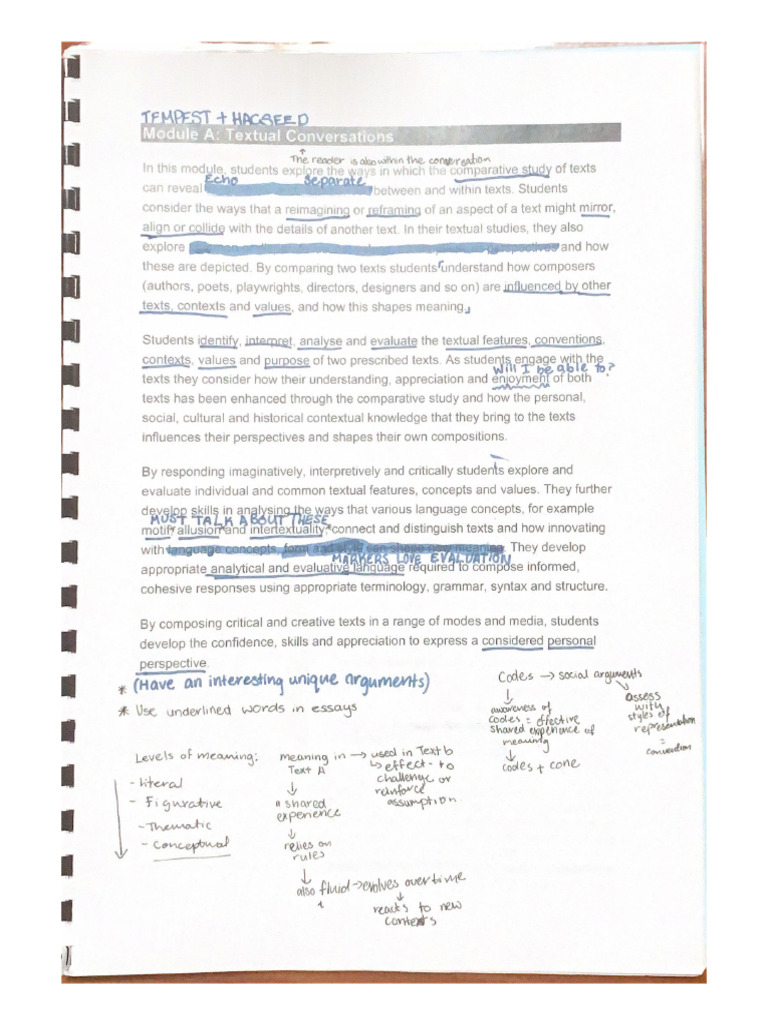 TEMPEST + HAGSEED
Module A: Textual Conversations
The reader is also within the conversation
In this module, students explore the ways in which the comparative study of texts
Echo Separate
can reveal between and within texts. Students
consider the ways that a reimagining or reframing of an aspect of a text might mirror,
align or collide with the details of another text. In their textual studies, they also
explore perspectives and how
these are depicted. By comparing two texts students understand how composers
(authors, poets, playwrights, directors, designers and so on) are influenced by other
texts, contexts and values, and how this shapes meaning.
Students identify, interpret, analyse and evaluate the textual features, conventions,
contexts, values and purpose of two prescribed texts. As students engage with the
Will I be able to?
texts they consider how their understanding, appreciation and enjoyment of both
texts has been enhanced through the comparative study and how the personal,
social, cultural and historical contextual knowledge that they bring to the texts
influences their perspectives and shapes their own compositions.
By responding imaginatively, interpretively and critically students explore and
evaluate individual and common textual features, concepts and values. They further
develop skills in analysing the ways that various language concepts, for example
MUST TALK ABOUT THESE
motif, allusion and intertextuality, connect and distinguish texts and how innovating
with language concepts, form and style can shape new meaning. They develop
MARKERS LOVE EVALUATION
appropriate analytical and evaluative language required to compose informed,
cohesive responses using appropriate terminology, grammar, syntax and structure.
By composing critical and creative texts in a range of modes and media, students
develop the confidence, skills and appreciation to express a considered personal
perspective.
* (Have an interesting unique arguments)
* Use underlined words in essays
Codes → social arguments
↓
awareness of
codes = effective
shared experience of
meaning
↓
codes + conc
assess
with
styles of
representation
=
convention
Levels of meaning:
- literal
- Figurative
- Thematic
- Conceptual
meaning in → used in Text b
Text A
↳ effect - to
challenge or
reinforce
assumption
↓
a shared
experience
↓
relies on
rules
↓
also fluid → evolves over time
↓
reacts to new
contexts